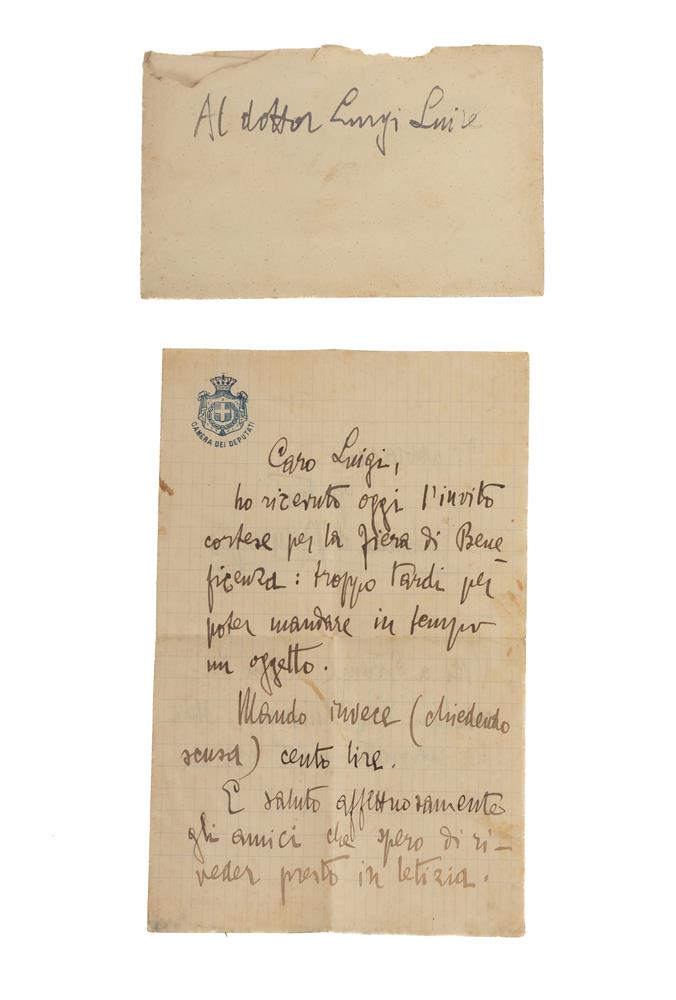 Al dottor Luigi
CAMERA DEI DEPUTATI
Caro Luigi,
ho ricevuto oggi l'invito
cortese per la Fiera di Bene-
ficenza: troppo tardi per
poter mandare in tempo
un oggetto.
Mando invece (chiedendo
scusa) cento lire.
E saluto affettuosamente
gli amici che spero di ri-
veder presto in letizia.